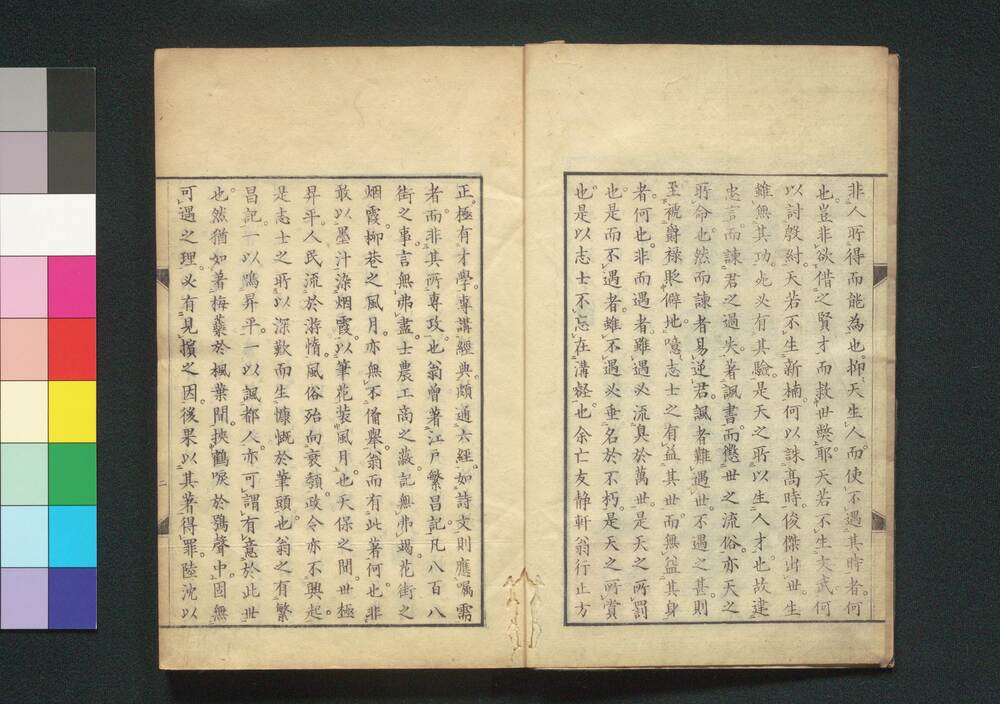 非人所得而能為也。抑天生人而使不遇其時者。何
也。豈非欲借之賢才而救世獘耶。天若不生文武何
以討殷紂。天若不生新楠何以誅高時。俊傑出世。生
雖無其功。死必有其驗。是天之所以生人才也。故建
忠言而諫君之過失。著諷書而懲世之流俗。亦天之
所命也。然而諫者易逆君。諷者難遇世。不遇之甚。則
至褫爵禄貶僻地。噫志士之有益其世而無益其身
者。何也。非而遇者。雖遇必流臭於萬世。是天之所罰
也。是而不遇者。雖不遇必垂名於不朽。是天之所賞
也。是以志士不忘在溝壑也。余亡友静軒翁行止方
正。極有才學。專講經典。頗通六經。如詩文則應嘱需
者。而非其所專攻也。翁曾著江戸繁昌記。凡八百八
街之事。言無弗盡。士農工商之蔽。記無弗竭。花街之
烟霞。柳巷之風月。亦無不備舉。翁而有此著何也。非
敢以墨汁染烟霞。以筆花装風月也。天保之間。世極
昇平。人民流於游惰。風俗殆向衰頽。政令亦不興起。
是志士之所以深歎而生慷慨於筆頭也。翁之有繁
昌記。一以鳴昇平。一以諷都人。亦可謂有意於此世
也。然猶如著梅蘂於楓葉間。挾鶴唳於鵶聲中。固無
可遇之理。必有見擯之因。後果以其著得罪。陸沈以
二